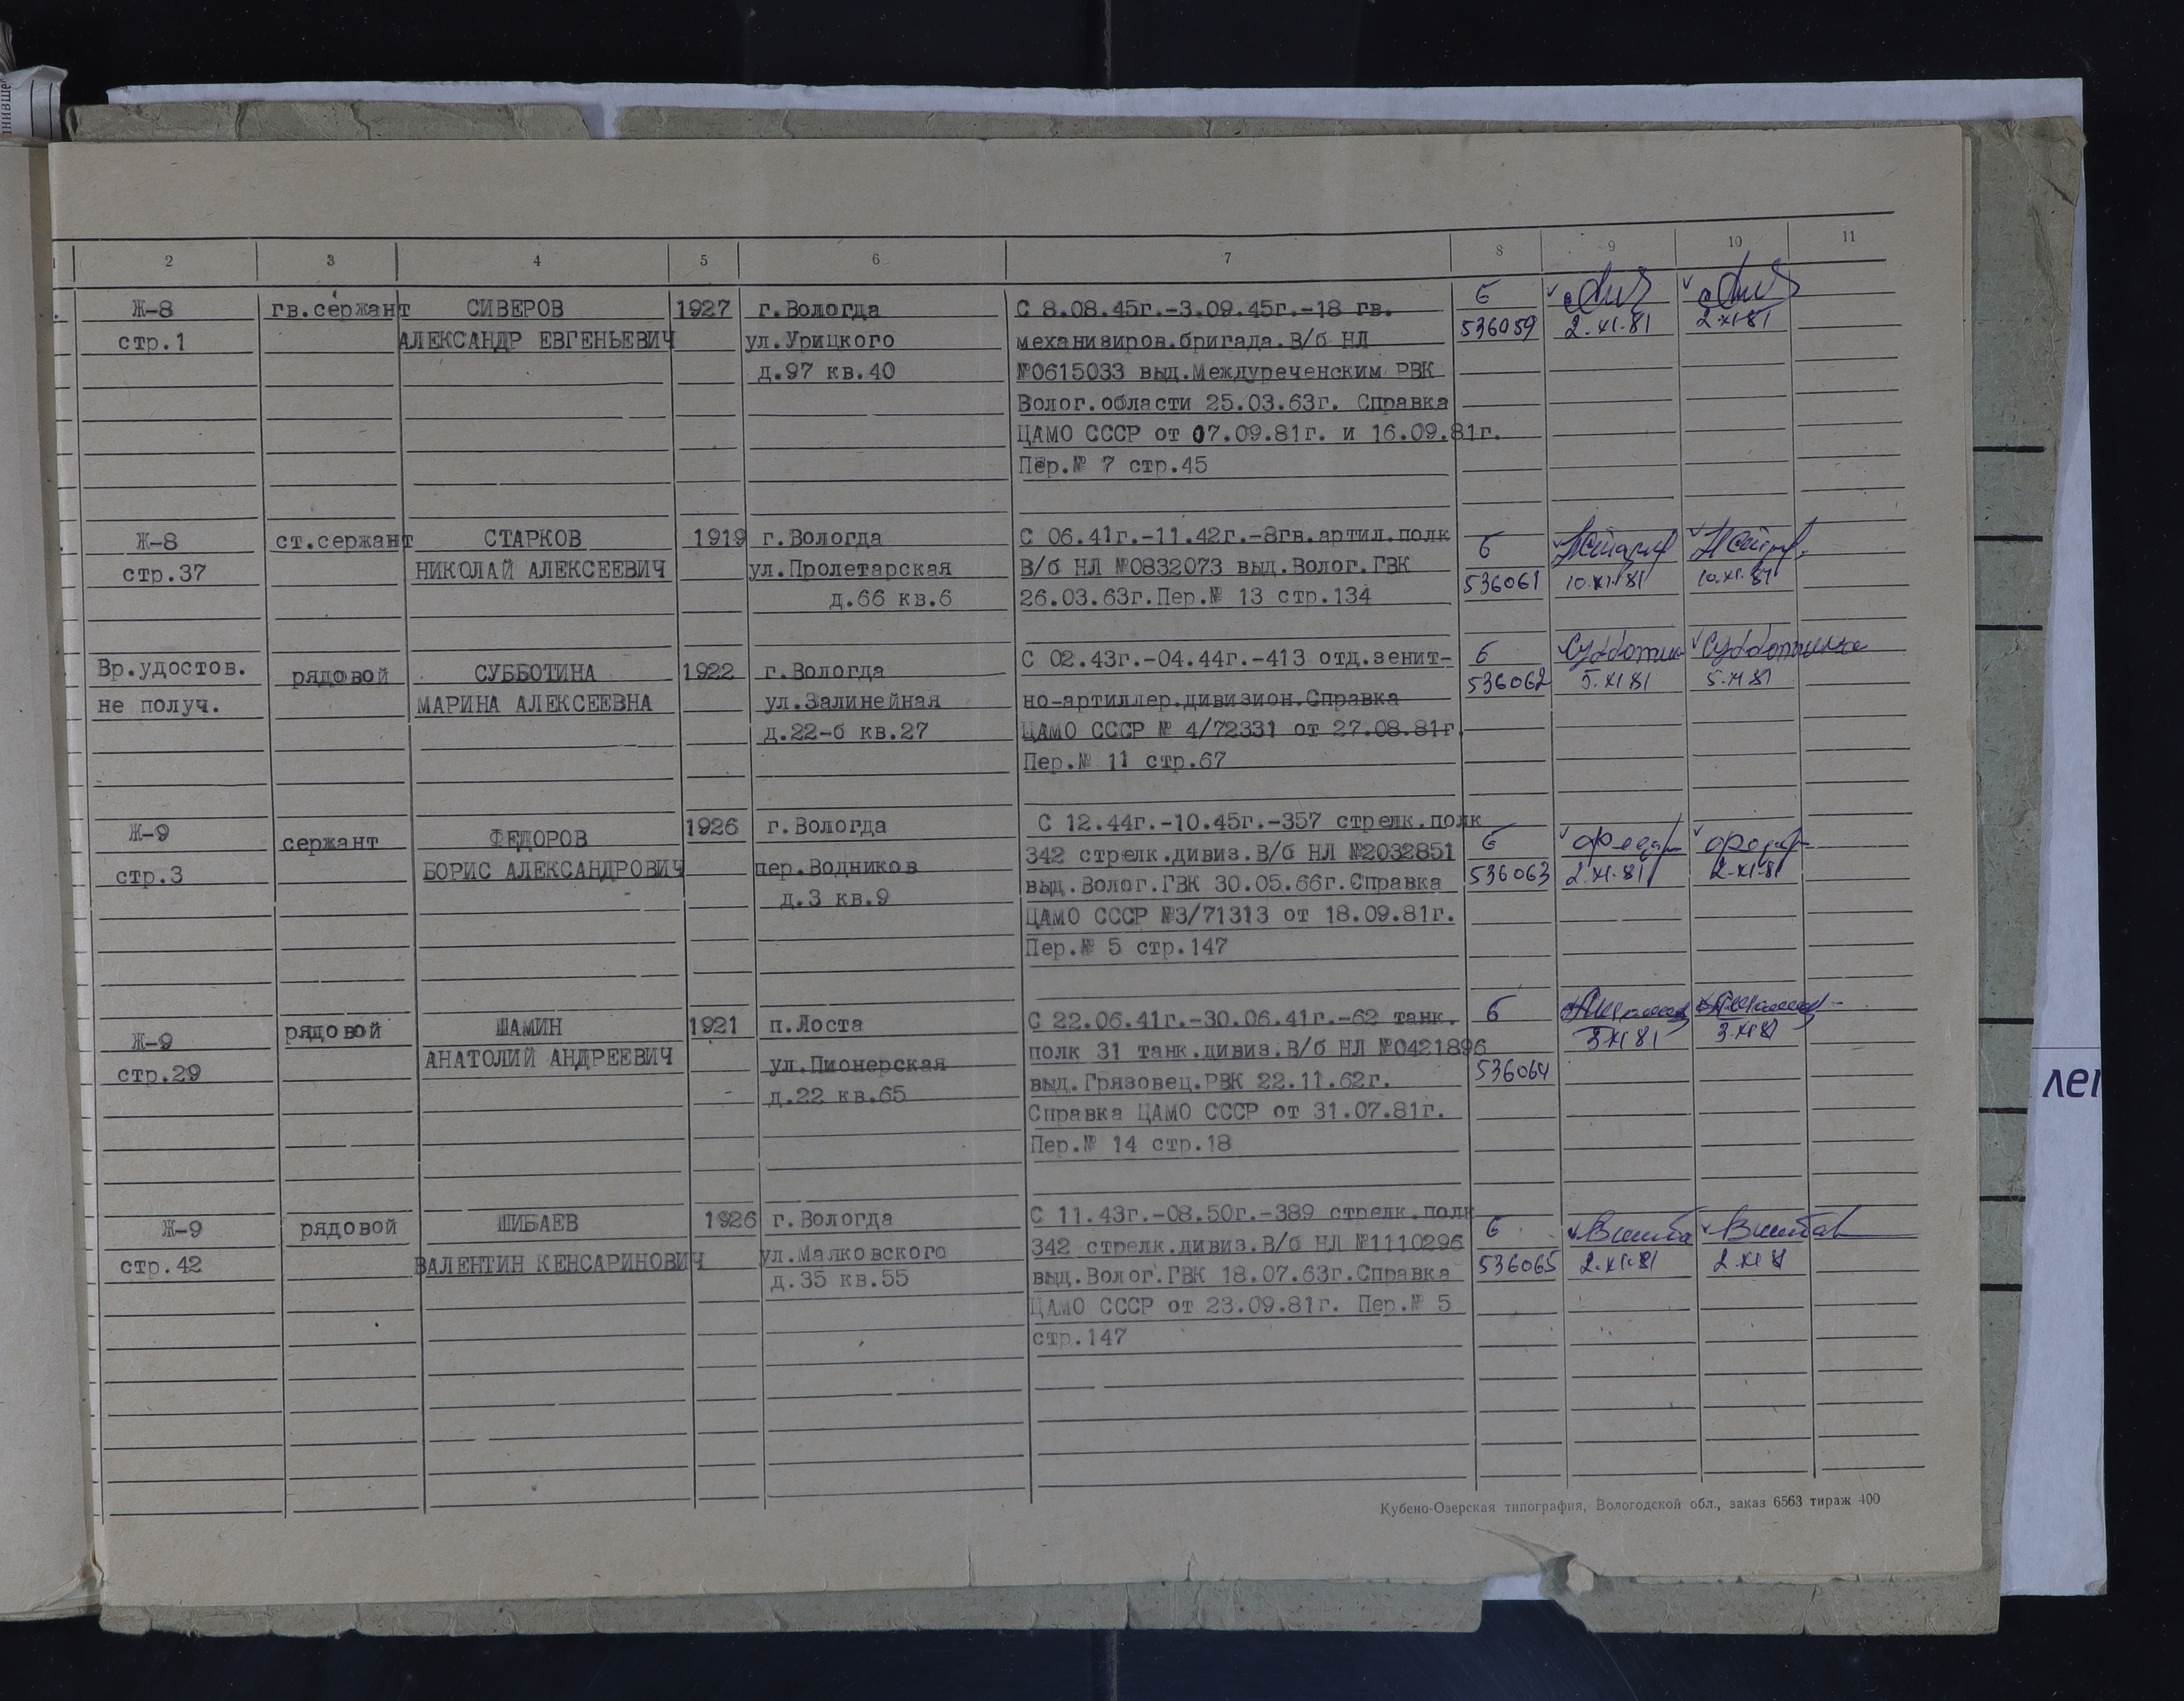 2 3 4 5 6 7 8 9 10 11
Ж-8
стр.1
гв.сержант
СИВЕРОВ
АЛЕКСАНДР ЕВГЕНЬЕВИЧ
1927
г.Вологда
ул.Урицкого
д.97 кв.40
С 8.08.45г.-3.09.45г.-18 гв.
механизиров.бригада.В/б НЛ
№0615033 выд.Междуреченским РВК
Волог.области 25.03.63г. Справка
ЦАМО СССР от 07.09.81г. и 16.09.81г.
Пер.№ 7 стр.45
Б
536059
2.XI.81
2.XI.81
Ж-8
стр.37
ст.сержант
СТАРКОВ
НИКОЛАЙ АЛЕКСЕЕВИЧ
1919
г.Вологда
ул.Пролетарская
д.66 кв.6
С 06.41г.-11.42г.-8гв.артил.полк
В/б НЛ №0832073 выд.Волог.ГВК
26.03.63г.Пер.№ 13 стр.134
Б
536061
10.XI.81
10.XI.81
Вр.удостов.
не получ.
рядовой
СУББОТИНА
МАРИНА АЛЕКСЕЕВНА
1922
г.Вологда
ул.Залинейная
д.22-б кв.27
С 02.43г.-04.44г.-413 отд.зенит-
но-артиллер.дивизион.Справка
ЦАМО СССР № 4/72331 от 27.08.81г.
Пер.№ 11 стр.67
Б
536062
5.XI 81
5.XI 81
Ж-9
стр.3
сержант
ФЕДОРОВ
БОРИС АЛЕКСАНДРОВИЧ
1926
г.Вологда
пер.Водников
д.3 кв.9
С 12.44г.-10.45г.-357 стрелк.полк
342 стрелк.дивиз.В/б НЛ №2032851
выд.Волог.ГВК 30.05.66г.Справка
ЦАМО СССР №3/71313 от 18.09.81г.
Пер.№ 5 стр.147
Б
536063
2.XI.81
2.XI.81
Ж-9
стр.29
рядовой
ШАМИН
АНАТОЛИЙ АНДРЕЕВИЧ
1921
п.Лоста
ул.Пионерская
д.22 кв.65
С 22.06.41г.-30.06.41г.-62 танк.
полк 31 танк.дивиз.В/б НЛ №0421896
выд.Грязовец.РВК 22.11.62г.
Справка ЦАМО СССР от 31.07.81г.
Пер.№ 14 стр.18
Б
536064
3 XI 81
3.XI 81
Ж-9
стр.42
рядовой
ШИБАЕВ
ВАЛЕНТИН КЕНСАРИНОВИЧ
1926
г.Вологда
ул.Маяковского
д.35 кв.55
С 11.43г.-08.50г.-389 стрелк.полк
342 стрелк.дивиз.В/б НЛ №1110296
выд.Волог.ГВК 18.07.63г.Справка
ЦАМО СССР от 23.09.81г. Пер.№ 5
стр.147
Б
536065
2.XI.81
2.XI 81
Кубено-Озерская типография, Вологодской обл., заказ 6563 тираж 400